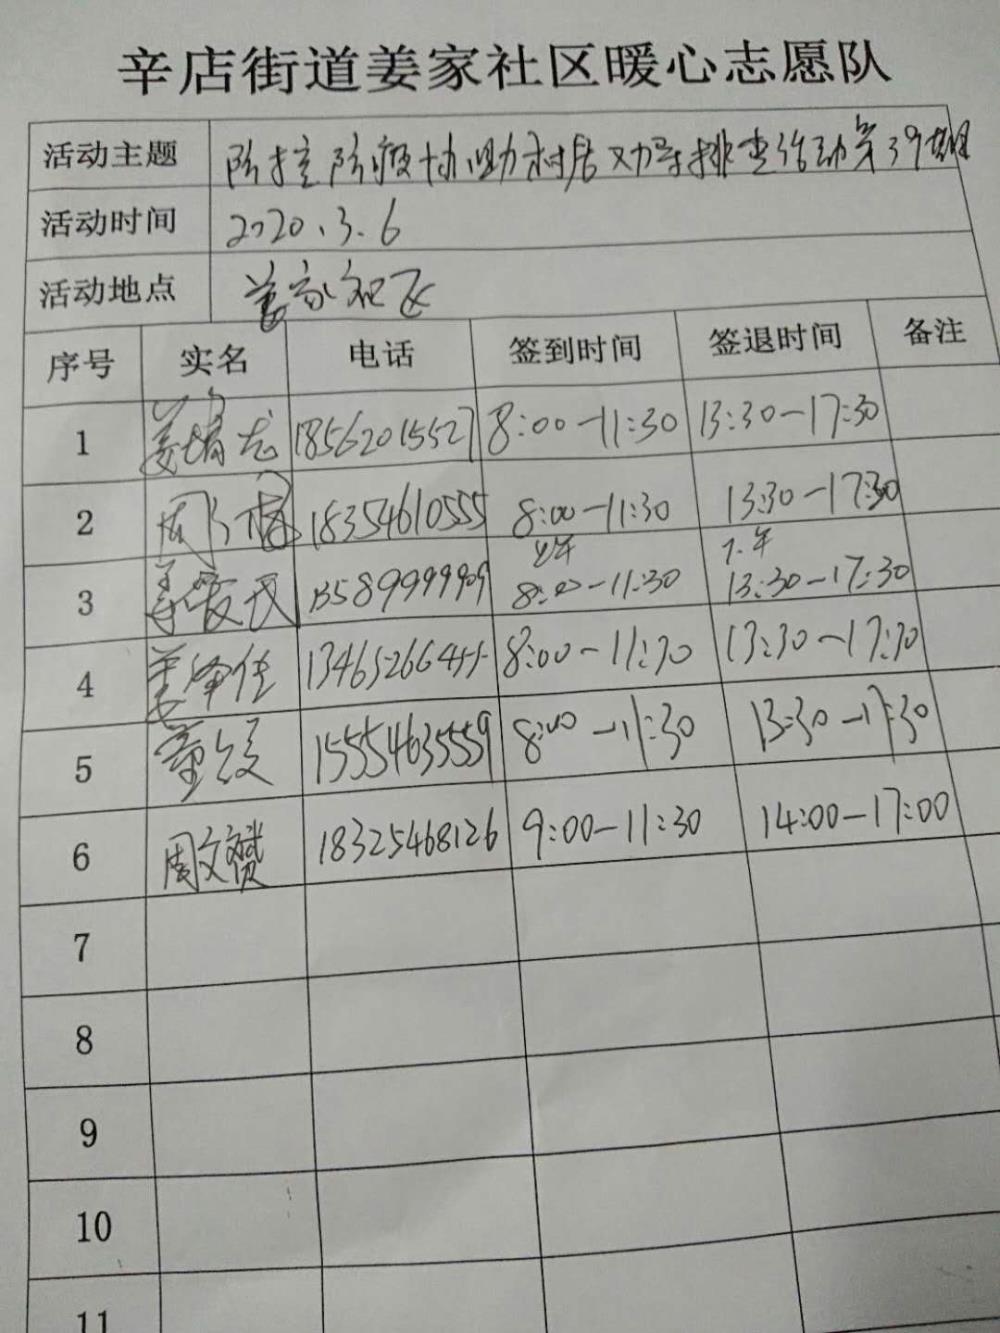 辛店街道姜家社区暖心志愿队
活动主题 防控防疫协助村居劝导排查活动第39期
活动时间 2020.3.6
活动地点 姜家社区
序号 实名 电话 签到时间 签退时间 备注
1 姜 龙 18562015527 8:00-11:30 13:30-17:30
2 周 18354610555 8:00-11:30 13:30-17:30
3 姜爱民 13589999909 上午 8:00-11:30 下午 13:30-17:30
4 姜泽佳 13465266455 8:00-11:30 13:30-17:30
5 15554635559 8:00-11:30 13:30-17:30
6 周文赟 18325468126 9:00-11:30 14:00-17:00
7
8
9
10
11